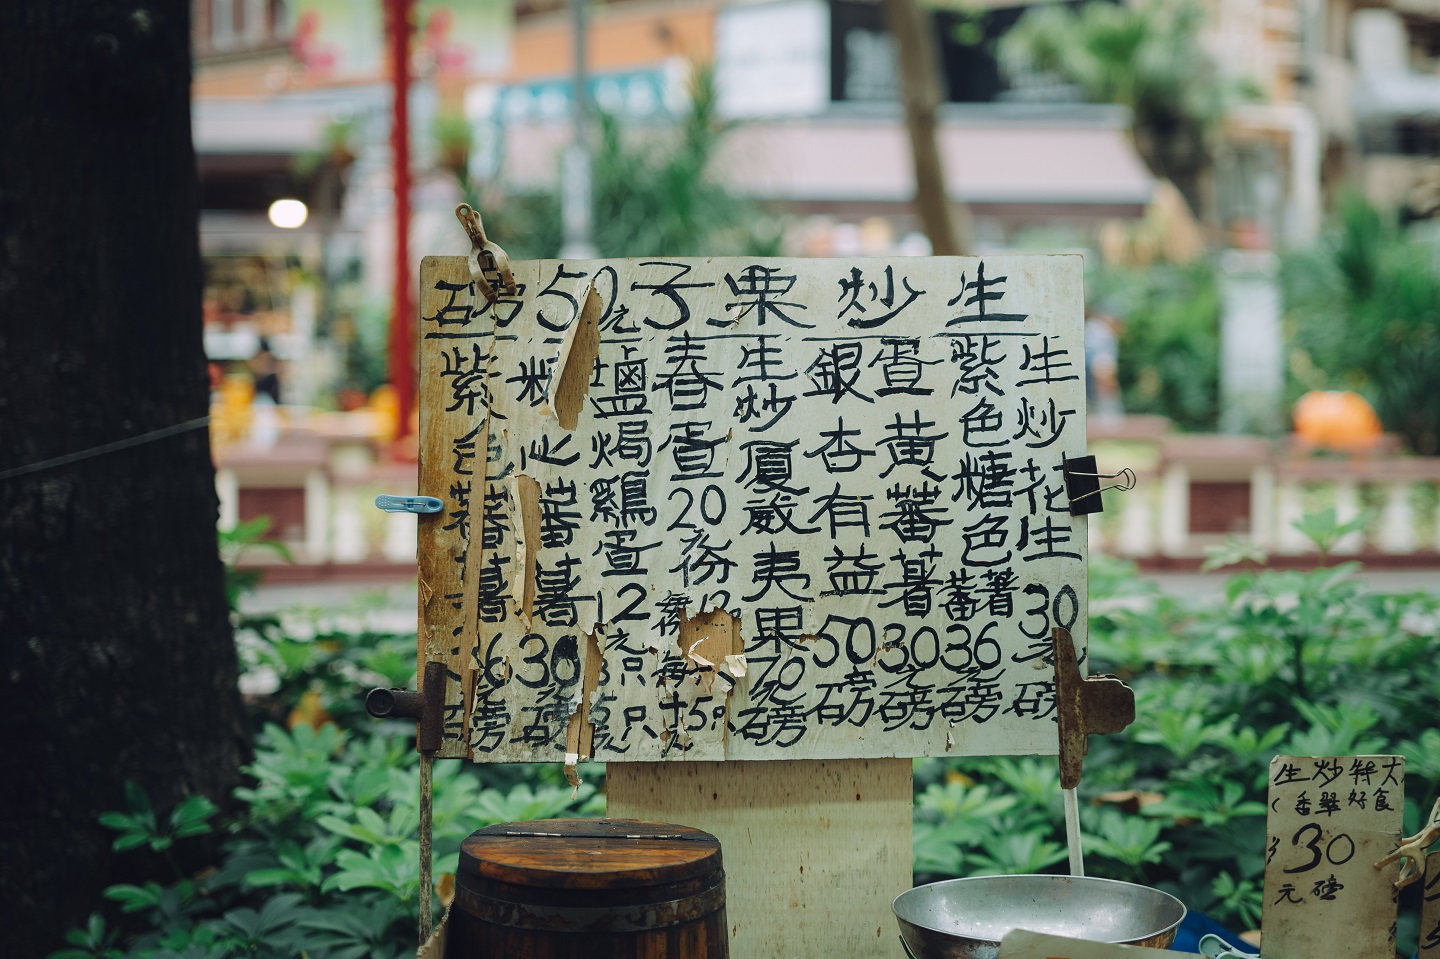 生炒栗子50元磅
生炒花生30元磅
紫色糖色蕃薯36元磅
蛋黃蕃薯30元磅
銀杏有益50磅
生炒夏威夷果70元磅
春蛋20
鹽焗鷄蛋12元3只5元只
心蕃薯30元磅
紫色蕃薯36磅
生炒特大
(香翠好食
30
元磅